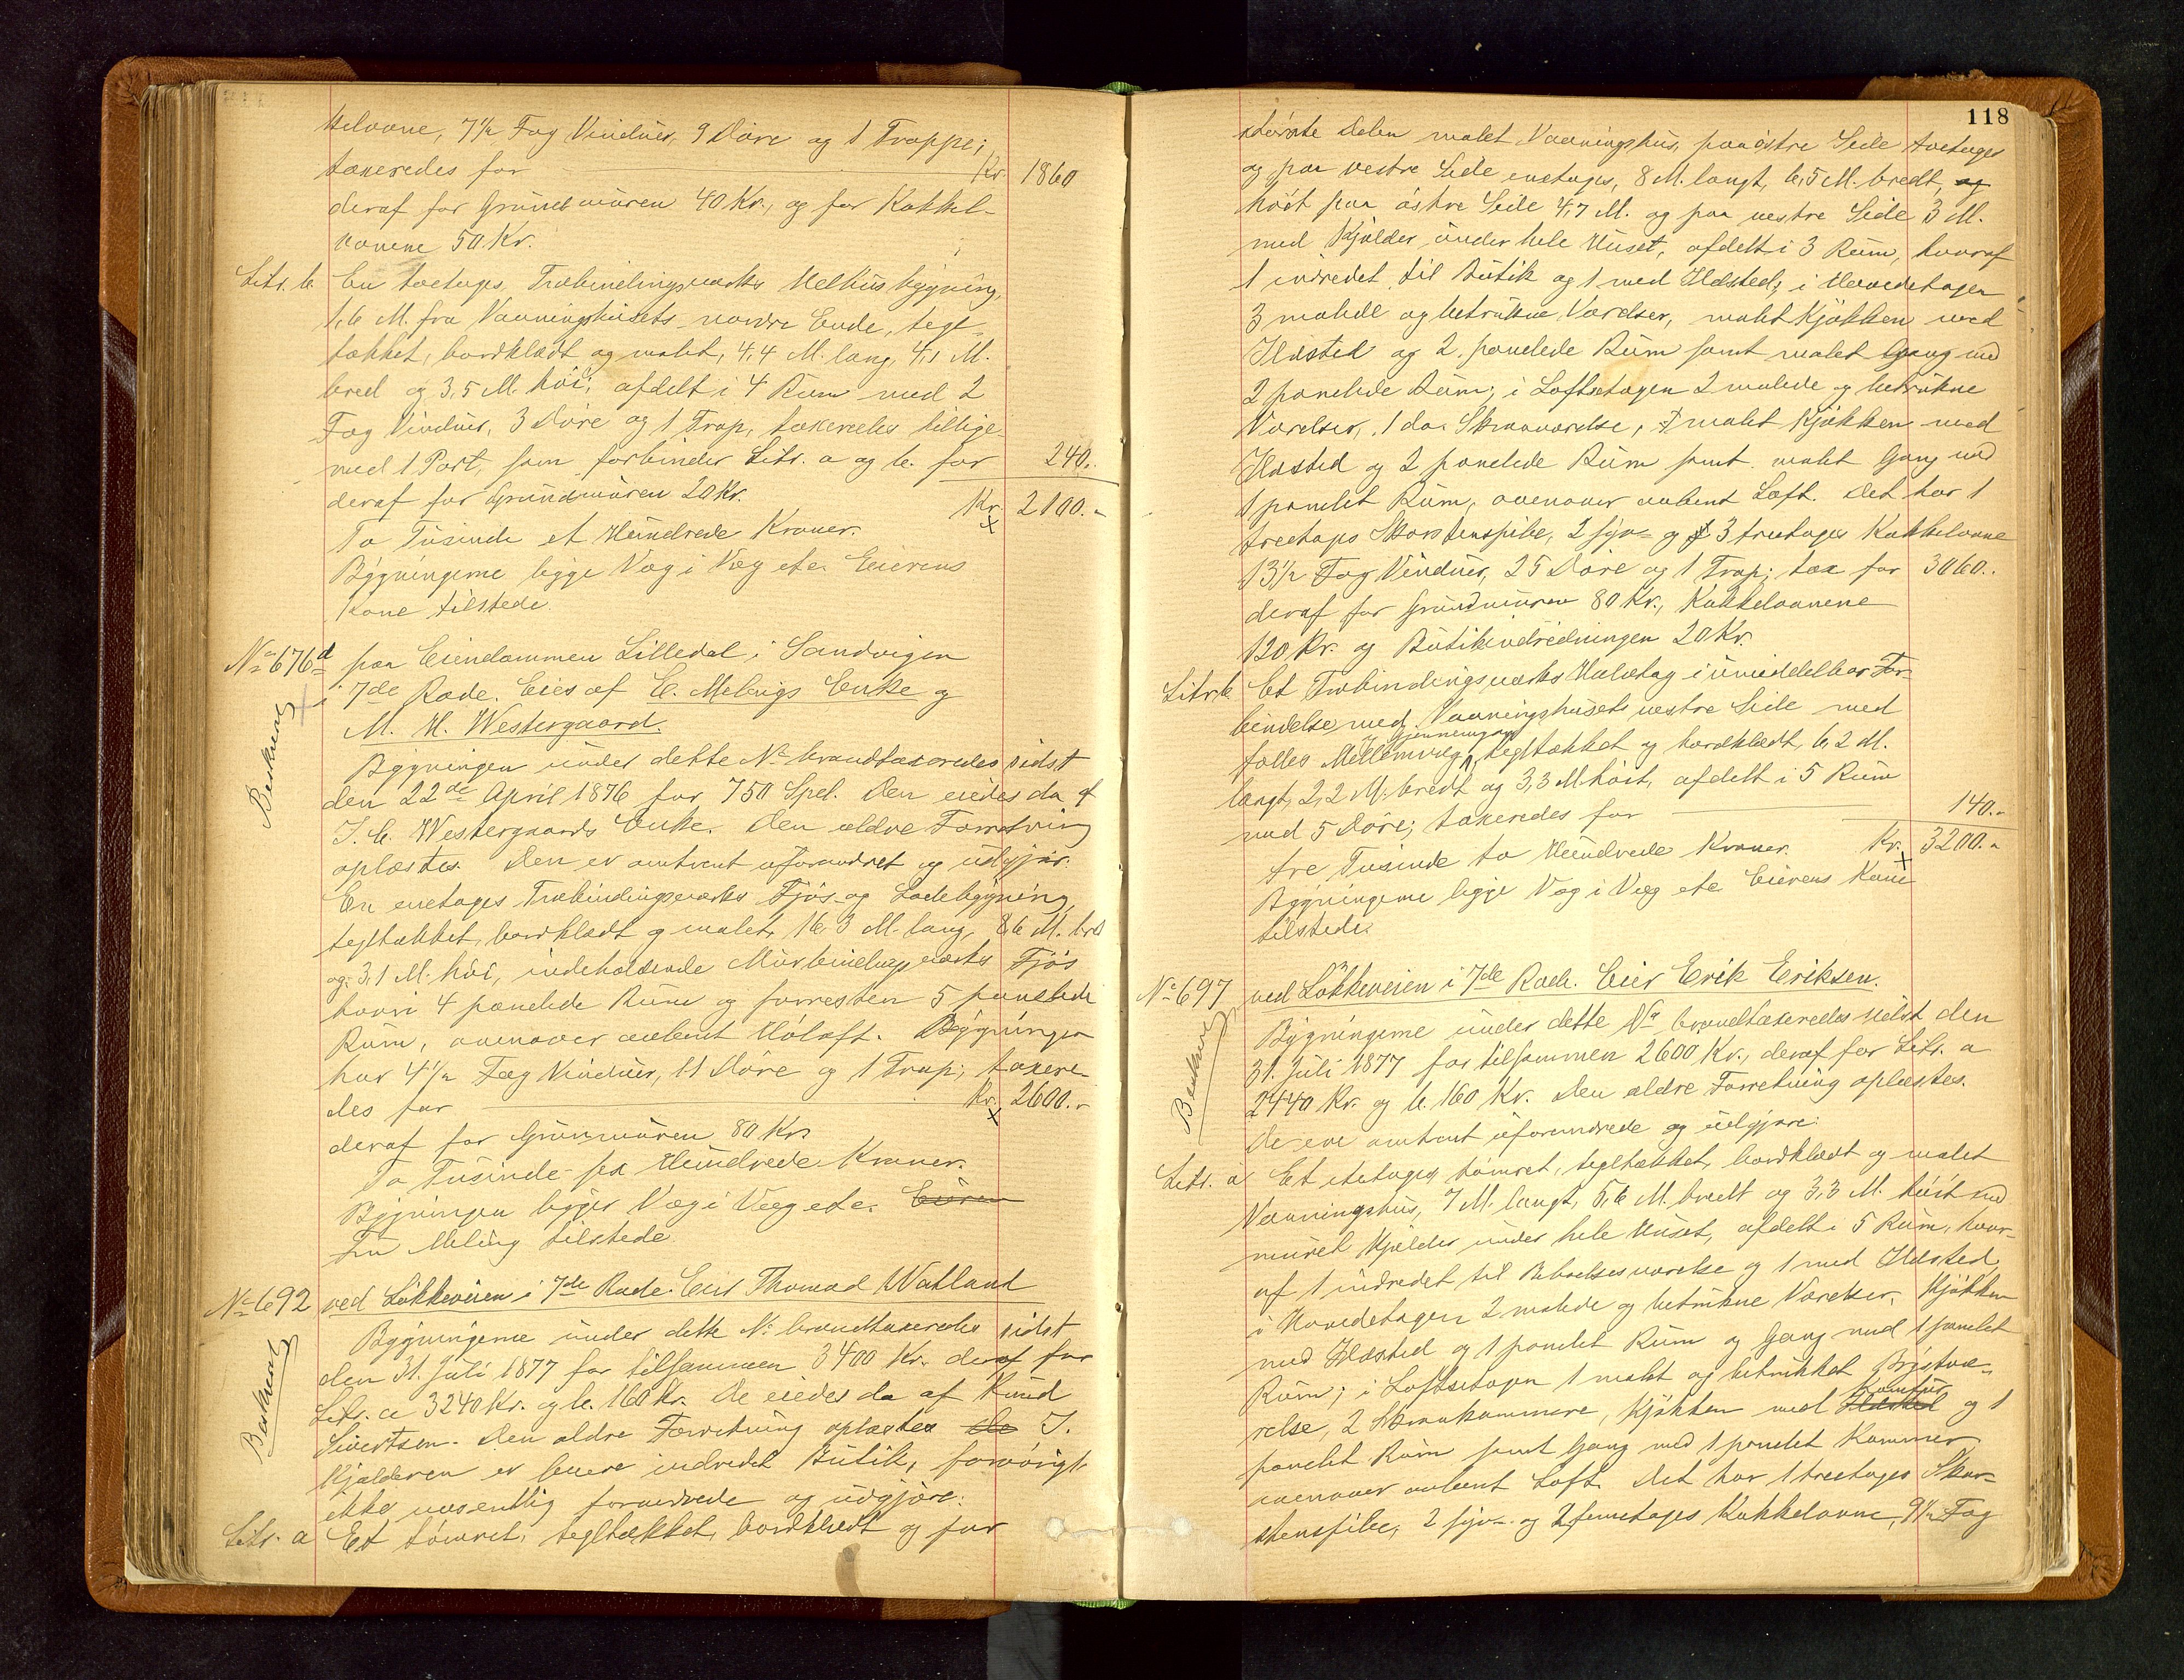 kelovne, 7½ Fag Vinduer, 9 Döre og 1 Trappe;
taxeredes for Kr. 1860
deraf for Grundmuren 40 Kr., og for Kakkel-
ovnene 50 Kr.
Litr. b. En toetages, Træbindingsværks Melhusbygning,
1,6 M. fra Vaaningshusets nordre Ende, tegl-
tækket, bordklædt og malet, 4,4 M. lang, 4,1 M.
bred og 3,5 M. höi; afdelt i 4 Rum med 2
Fag Vinduer, 3 Döre og 1 Trap, taxeredes tillige-
med 1 Port, som forbinder Litr. a og b. for 240..
deraf for Grundmuren 20 Kr. Kr. 2100.-
To Tusinde et Hundrede Kroner.
Bygningerne ligge Væg i Væg etc. Eierens
Kone tilstede.
No 676d paa Eiendommen Lilledal i Sandvigen
i 7de Rode. Eies af E. Melings Enke og
M. H. Westergaard.
Beskrevet
Bygningen under dette No brandtaxeredes sidst
den 22de April 1876 for 750 Spd. Den eiedes da af
J. C. Westergaards Enke. Den ældre Forretning
oplæstes. Den er omtrent uforandret og udgjør:
En enetages Træbindingsværks Fjös- og Ladebygning,
tegltækket, bordklædt og malet, 16,3 M. lang, 8,6 M. bred
og 3,1 M. höi, indeholdende Murbindingsværks Fjös
hvori 4 panelede Rum og forresten 5 panelede
Rum, ovenover aabent Höloft. Bygningen
har 4½ Fag Vinduer, 11 Döre og 1 Trap; taxere-
des for Kr. 2600.-
deraf for Grunmuren 80 Kr.
To Tusinde sex Hundrede Kroner.
Bygningen ligger Væg i Væg etc. Eieren
Fru Meling tilstede
No 692 ved Lökkeveien i 7de Rode. Eier Thomas Watland
Beskrevet
Bygningerne under dette No brandtaxeredes sidst
den 31. Juli 1877 for tilsammen 3400 Kr. deraf for
Litr. a 3240 Kr. og b. 160 Kr. De eiedes da af Knud
Sivertsen. Den ældre Forretning oplæstes de I.
Kjælderen er bleven indredet Butik, forövrigt
ikke væsentlig forandrede og udgjöre:
Litr. a Et tömret, tegltækket, bordklædt og for
118
störste Delen malet Vaaningshus, paa östre Side toetages
og paa vestre Side enetages, 8 M. langt, 6,5 M. bredt, og
höit paa östre Side 4,7 M. og paa vestre Side 3 M.
med Kjælder under hele Huset, afdelt i 3 Rum, hvoraf
1 indredet til Butik og 1 med Ildsted; i Hovedetagen
3 malede og betrukne Værelser, malet Kjökken med
Ildsted og 2 panelede Rum samt malet Gang med
2 panelede Rum; i Loftsetagen 2 malede og betrukne
Værelser, 1 do. Skraaværelse, 1 malet Kjökken med
Ildsted og 2 panelede Rum samt malet Gang med
1 panelet Rum, ovenover aabent Loft. Det har 1
treetages Skorstenspibe, 2 syv- og 3 treetages Kakkelovne
13½ Fag Vinduer, 25 Döre og 1 Trap; tax for 3060..
deraf for Grundmuren 80 Kr., Kakkelovnene
120 Kr. og Butikindredningen 20 Kr.
Litr. b. Et Træbindingsværks Halvtag i umiddelbar For-
bindelse med Vaaningshusets vestre Side med
Gjennemgang
fælles Mellemvæg, tegltækket og bordklædt, 6,2 M.
langt, 2,2 M. bredt og 3,3 M. höit, afdelt i 5 Rum
med 5 Döre; taxeredes for 140.-
tre Tusinde to Hundrede Kroner. Kr. 3200.-
Bygningerne ligge Væg i Væg etc Eierens Kone
tilstede.
No 697 ved Lökkeveien i 7de Rode. Eier Erik Eriksen.
Beskrevet
Bygningerne under dette No brandtaxeredes sidst den
31. Juli 1877 for tilsammen 2600 Kr., deraf for Litr. a
2440 Kr. og b. 160 Kr. Den ældre Forretning oplæstes.
De ere omtrent uforandrede og udgjöre:
Litr. a Et etetages tömret, tegltækket, bordklædt og malet
Vaaningshus, 7 M. langt, 5,6 M. bredt og 3,3 M. höit med
muret Kjælder under hele Huset, afdelt i 5 Rum, hvor-
af 1 indredet til Beboelsesværelse og 1 med Ildsted,
i Hovedetagen 2 malede og betrukne Værelser, Kjökken
med Ildsted og 1 panelet Rum og Gang med 1 panelet
Rum; i Loftsetagen 1 malet og betrukket Brystvæ-
Komfur
relse, 2 Skraakammere, Kjökken med Ildsted og 1
panelet Rum samt Gang med 1 panelet Kammer
ovenover aabent Loft. Det har 1 treetages Skor-
stenspibe, 2 syv- og 2 femetages Kakkelovne, 9½ Fag